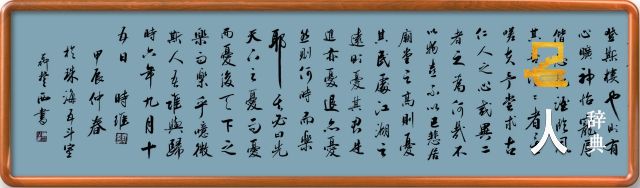 登斯樓也則有
心曠神怡寵辱
偕忘酒臨風
其者
嗟夫予嘗求古
仁人之心或異二
者之為何哉不
以物喜不以己悲居
廟堂之高則憂
其民處江湖之
遠則憂其君是
進亦憂退亦憂
然則何時而樂
耶 其必曰先
天下之憂
而憂後天下之
樂而樂乎噫微
斯人吾誰與歸
時六年九月十
五日 時維
甲辰仲春
於珠海斗室
西書
名人
辞典